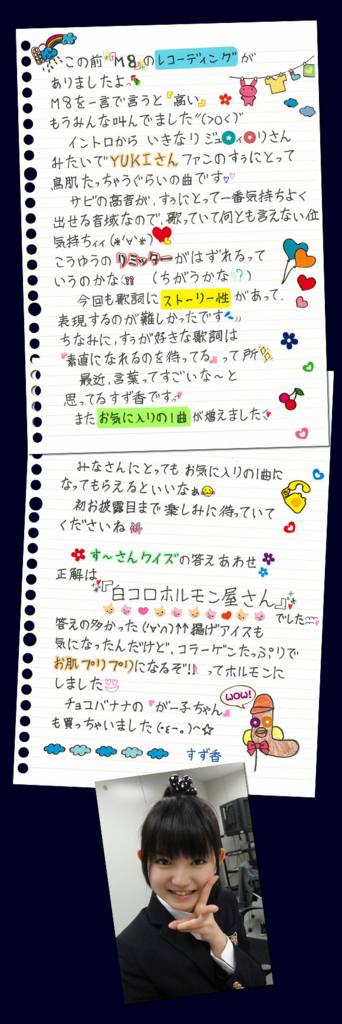 この前"M8"のレコーディングが
ありましたよっ
M8を一言で言うと『高い』
もうみんな叫んでました"(>o<)"
イントロから いきなり ジュ●ィ●リさん
みたいでYUKIさん ファンのすぅにとって
鳥肌たっちゃうぐらいの曲です♡♡
サビの高音が、すぅにとって一番気持ちよく
出せる音域なので、歌っていて何とも言えない位
気持ちィィ(*'∀'*)
こうゆうの リミッターがはずれるって
いうのかな (ちがうかな??)
今回も歌詞に ストーリー性 があって、
表現するのが難しかったです
ちなみに、すぅが好きな歌詞は
『素直になれるのを待ってる』って所
最近、言葉ってすごいな〜と
思ってるすず香ですっ
また お気に入りの1曲 が増えました
みなさんにとっても お気に入りの1曲に
なってもらえるといいなぁ
初お披露目まで楽しみに待っていて
くださいね
す〜さんクイズの答えあわせ
正解は
『白コロホルモン屋さん』
でした
答えの多かった(°∀°)↑↑揚げアイスも
気になったんだけど、コラーゲンたっぷりで
お肌プリプリになるぞ!! ってホルモンに
しました
チョコバナナの『がー子ちゃん』
も買っちゃいました(・ε-。)⌒☆
WOW!
すず香